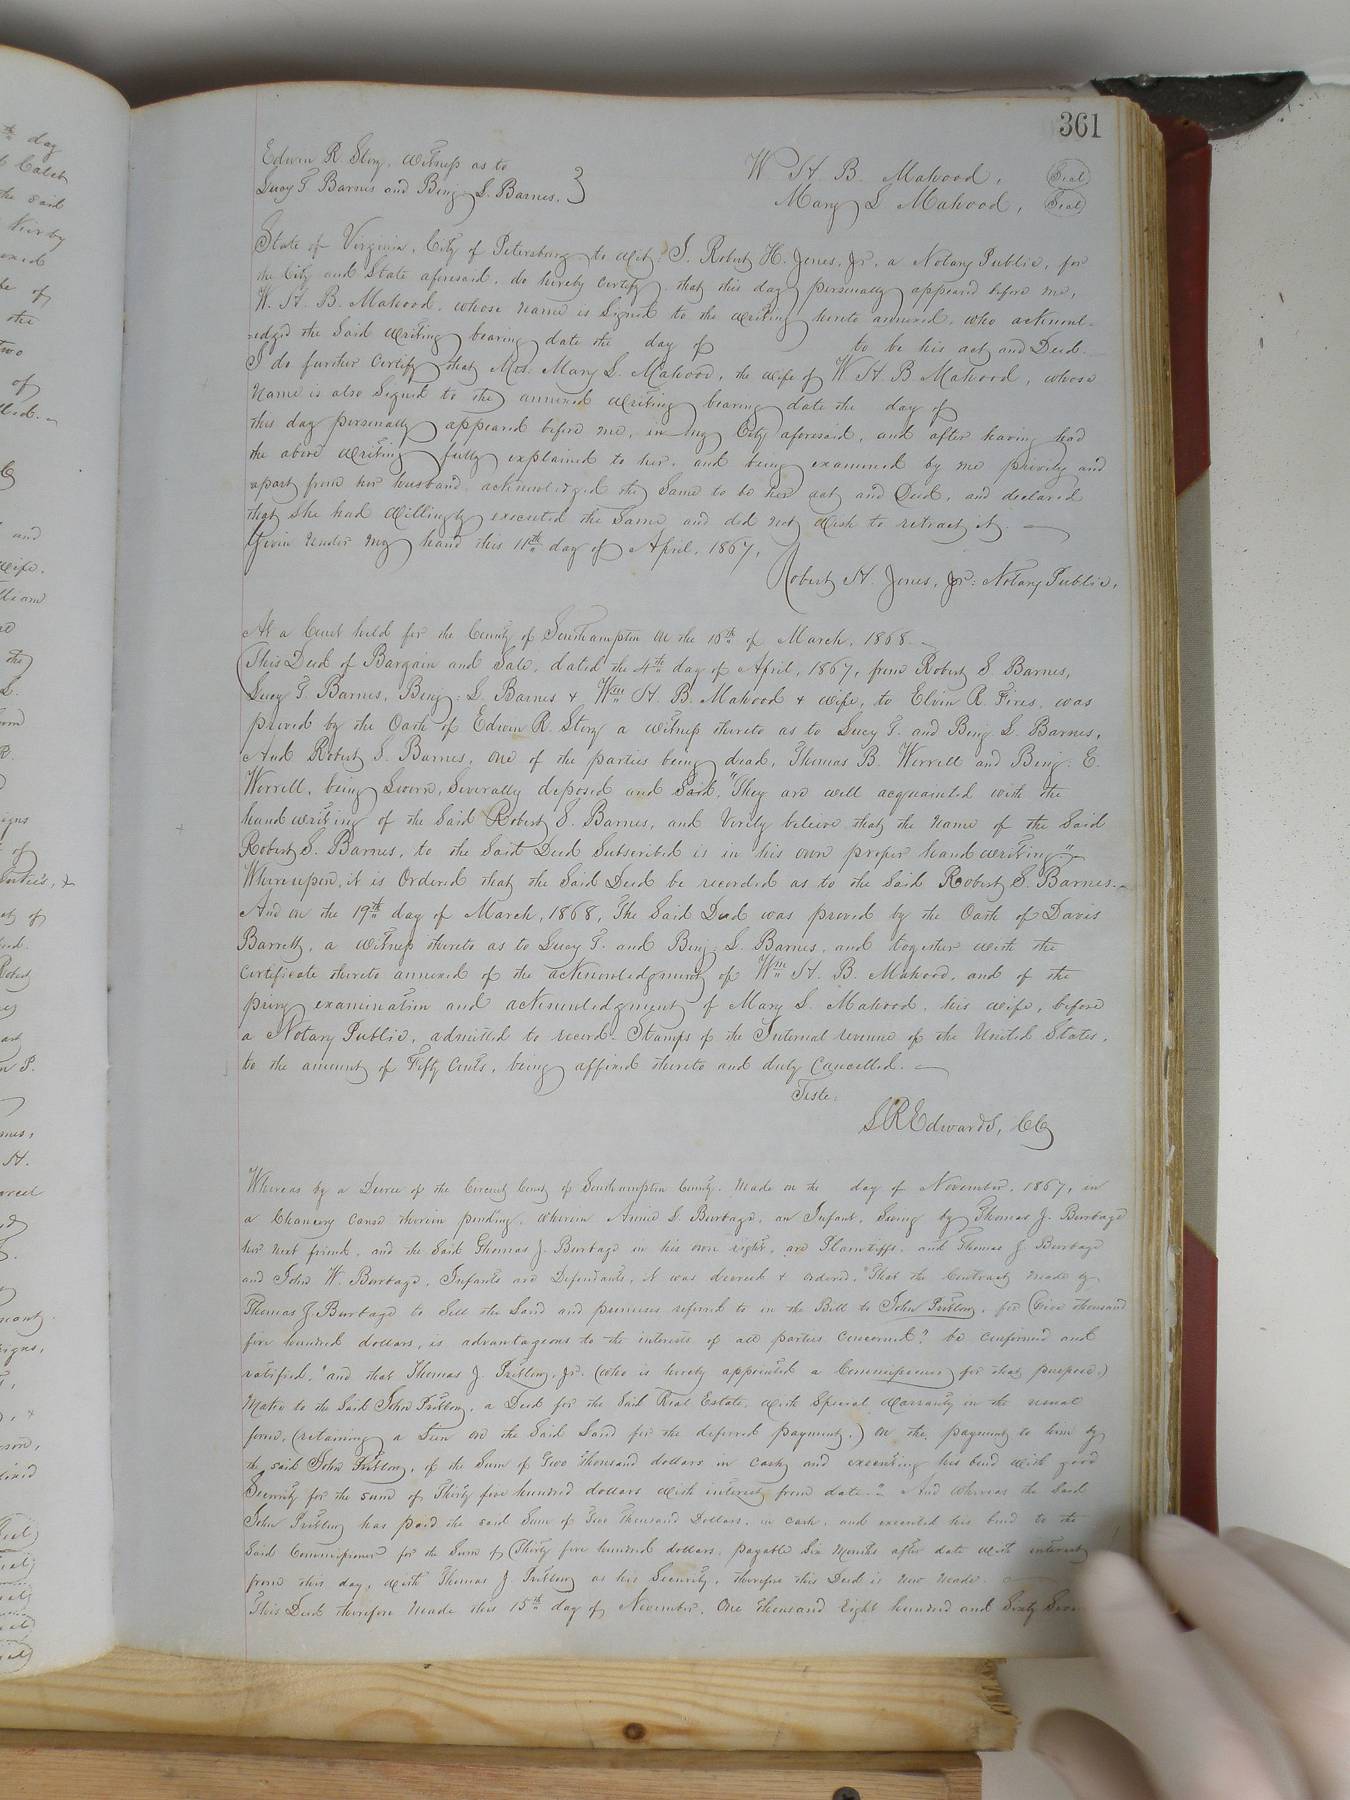 361
Edwin R. Story, Witness as to
Lucy T. Barnes and Benj. L. Barnes. }
W. H. B. Mahood, (Seal)
Mary L Mahood, (Seal)
State of Virginia, City of Petersburg to wit: I, Robert H. Jones, Jr. a Notary Public, for
the City and State aforesaid, do hereby certify that this day personally appeared before me,
W. H. B. Mahood, whose name is signed to the writing hereto annexed, who acknowl-
edged the said writing bearing date the day of to be his act and Deed.
I do further certify that Mrs. Mary L. Mahood, the wife of W. H. B Mahood, whose
name is also signed to the annexed writing bearing date the day of
this day personally appeared before me, in my City aforesaid, and after having had
the above writing fully explained to her, and being examined by me privily and
apart from her husband acknowledged the same to be her act and Deed, and declared
that she had willingly executed the same and did not wish to retract it.
Given under my hand this 11th day of April, 1867,
Robert H. Jones, Jr: Notary Public.
At a Court held for the County of Southampton on the 10th of March, 1868.
This Deed of Bargain and Sale, dated the 4th day of April, 1867, from Robert S. Barnes,
Lucy T. Barnes, Benj: L. Barnes & Wm H. B. Mahood & wife, to Elvin R. Fires, was
proved by the Oath of Edwin R. Story a witness thereto as to Lucy T. and Benj L. Barnes,
And Robert S. Barnes, one of the parties being dead, Thomas B. Worrell and Benj: E.
Worrell, being sworn, severally deposed and said, "They are well acquainted with the
hand writing of the said Robert S. Barnes, and verily believe that the name of the said
Robert S. Barnes, to the said Deed subscribed is in his own proper hand writing"
Whereupon, it is Ordered that the said Deed be recorded as to the said Robert S. Barnes.
And on the 19th day of March, 1868, The said Deed was proved by the Oath of Davis
Barrett, a witness thereto as to Lucy T. and Benj: L. Barnes, and together with the
certificate thereto annexed of the acknowledgment of Wm H. B. Mahood, and of the
privy examination and acknowledgment of Mary L. Mahood, his wife, before
a Notary Public, admitted to record. Stamps of the Internal revenue of the United States,
to the amount of Fifty cents, being affixed thereto and duly cancelled.
Teste:
L R Edwards, CC
Whereas by a Decree of the Circuit Court of Southampton County. made on the day of November, 1867, in
a Chancery cause therein pending, wherein Annie L. Burbage, an Infant, suing by Thomas J. Burbage
her next friend, and the said Thomas J. Burbage in his own right, are Plaintiffs, and Thomas J Burbage
and John W. Burbage, Infants are Defendants, it was decreed & ordered, "That the Contract made by
Thomas J. Burbage to sell the Land and premises referred to in the Bill to John Pretlow, for Five thousand
five hundred dollars, is advantageous to the interests of all parties concerned" be confirmed and
ratified, "and that Thomas J. Pretlow, Jr. (who is hereby appointed a Commissioner for that purpose,)
make to the said John Pretlow, a Deed for the said Real Estate, with special warranty in the usual
form, (retaining a Lien on the said Land for the deferred payment,) on the payment to him by
the said John Pretlow, of the sum of Two thousand dollars in cash and executing his bond with good
Security for the sum of Thirty five hundred dollars with interest from date." And whereas the said
John Pretlow has paid the said sum of Two Thousand Dollars, in cash, and executed his bond to the
said Commissioner for the sum of Thirty five hundred dollars, payable Six months after date with interest
from this day, with Thomas J. Pretlow as his Security, therefore this Deed is now made.
This Deed therefore made this 15th day of November, One thousand Eight hundred and Sixty Seven